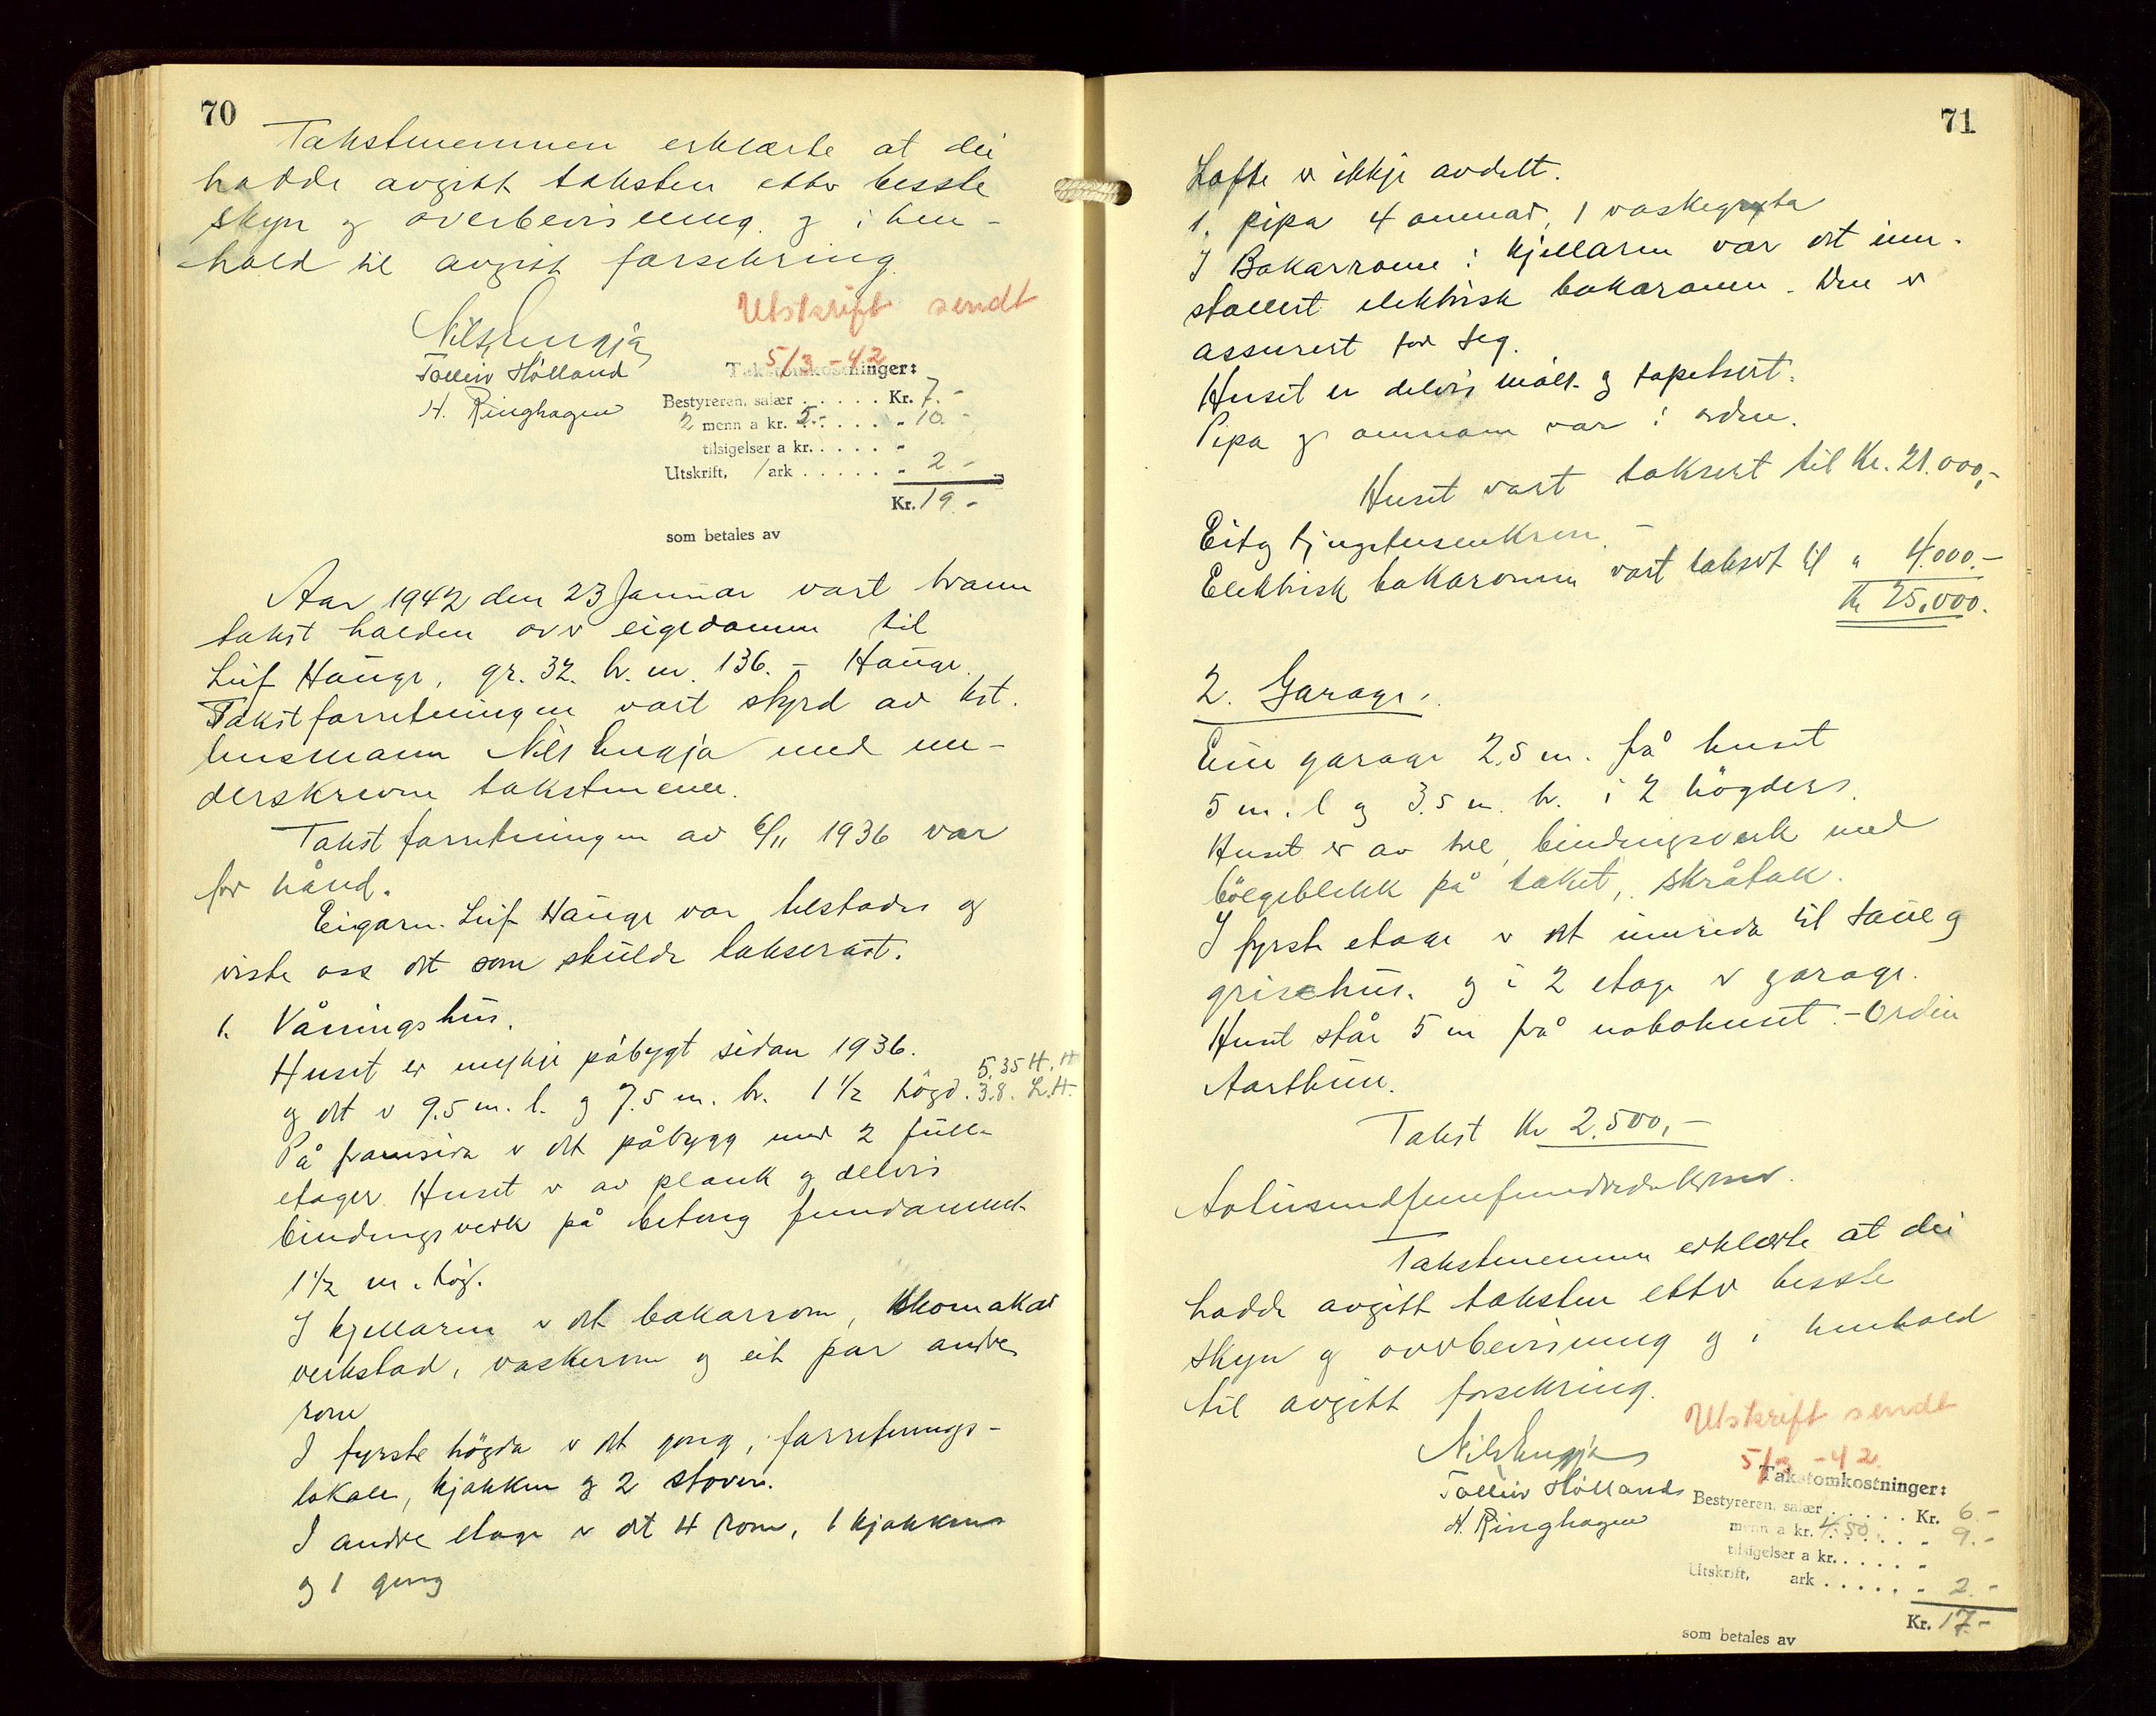 70
Takstmennen erklærte at dei
hadde avgitt taksten etter besste
skyn og overbevisning og i hen-
hold til avgitt forsikring
Utskrift sendt
5/3 -42
Nils Lengja
Tollev Hølland
H. Ringhagen
Takstomkostninger:
Bestyreren, salær . . . . . Kr. 7.-
2 menn a kr. 5.- . . . . - 10.-
tilsigelser a kr. . . . . . -
Utskrift, 1 ark . . . . . - 2.-
Kr. 19.-
som betales av
Aar 1942 den 23 Januar vart brann
takst halden over eigedomen til
Leif Hauge, gr. 32. br. nr. 136. - Hauge.
Takstforretningen vart styrd av kst.
lensmann Nils Lengja med un-
derskrevne takstmenn.
Takstforretningen av 6/11 1936 var
for hånd.
Eigarn. Leif Hauge var tilstades og
viste oss det som skulde takserast.
1. Våningshus.
Huset er mykje påbygt sidan 1936.
og det er 9.5 m. l. og 7.5 m. br. 1 1/2 høgd. 5.35 H. H
3.8. L.H.
På framsida er det påbygg med 2 fulle
etager. Huset er av plank og delvis
bindingsverk på betong fundament
1 1/2 m. høg.
I kjellaren er det bakarrom, skomakar
verkstad, vaskerom og eit par andre
rom
I fyrste høgda er det gong, forretnings-
lokale, kjøkken og 2 stover.
I andre etage er det 4 rom, 1 kjøkken
og 1 gong
71
Lofte er ikkje avdelt.
1. pipa 4 omnar, 1 vaskegryta
I Bakarrome i kjellaren var det inn-
stallert elektrisk bakaromn. Den er
assurert for seg.
Huset er delvis målt og tapetsert.
Pipa og omnann var i orden.
Huset vart taksert til Kr. 21.000,-
Eitogtjugetusenkroner.
Elektrisk bakaromn vart taksert til " 4.000.-
Kr 25.000.
2. Garage.
Ein garage 2.5 m. frå huset
5 m. l og 3.5 m. br. i 2 høgder.
Huset er av tre, bindingsverk med
bølgeblekk på taket, skråtak.
I fyrste etage er det innreda til saue og
grisehus. og i 2 etage er garage.
Huset står 5 m frå nabohuset. - Ordin
Aarthun.
Takst Kr 2.500,-
Totusendfemhundredekroner.
Takstmennen erklærte at dei
hadde avgitt taksten etter besste
skyn og overbevisning og i henhold
til avgitt forsikring.
Utskrift sendt
5/3 -42
Nils Lengja
Tollev Hølland
H. Ringhagen
Takstomkostninger:
Bestyreren, salær . . . . . Kr. 6.-
menn a kr. 4.50 . . . . - 9.-
tilsigelser a kr. . . . . . -
Utskrift, ark . . . . . - 2.-
Kr. 17.-
som betales av